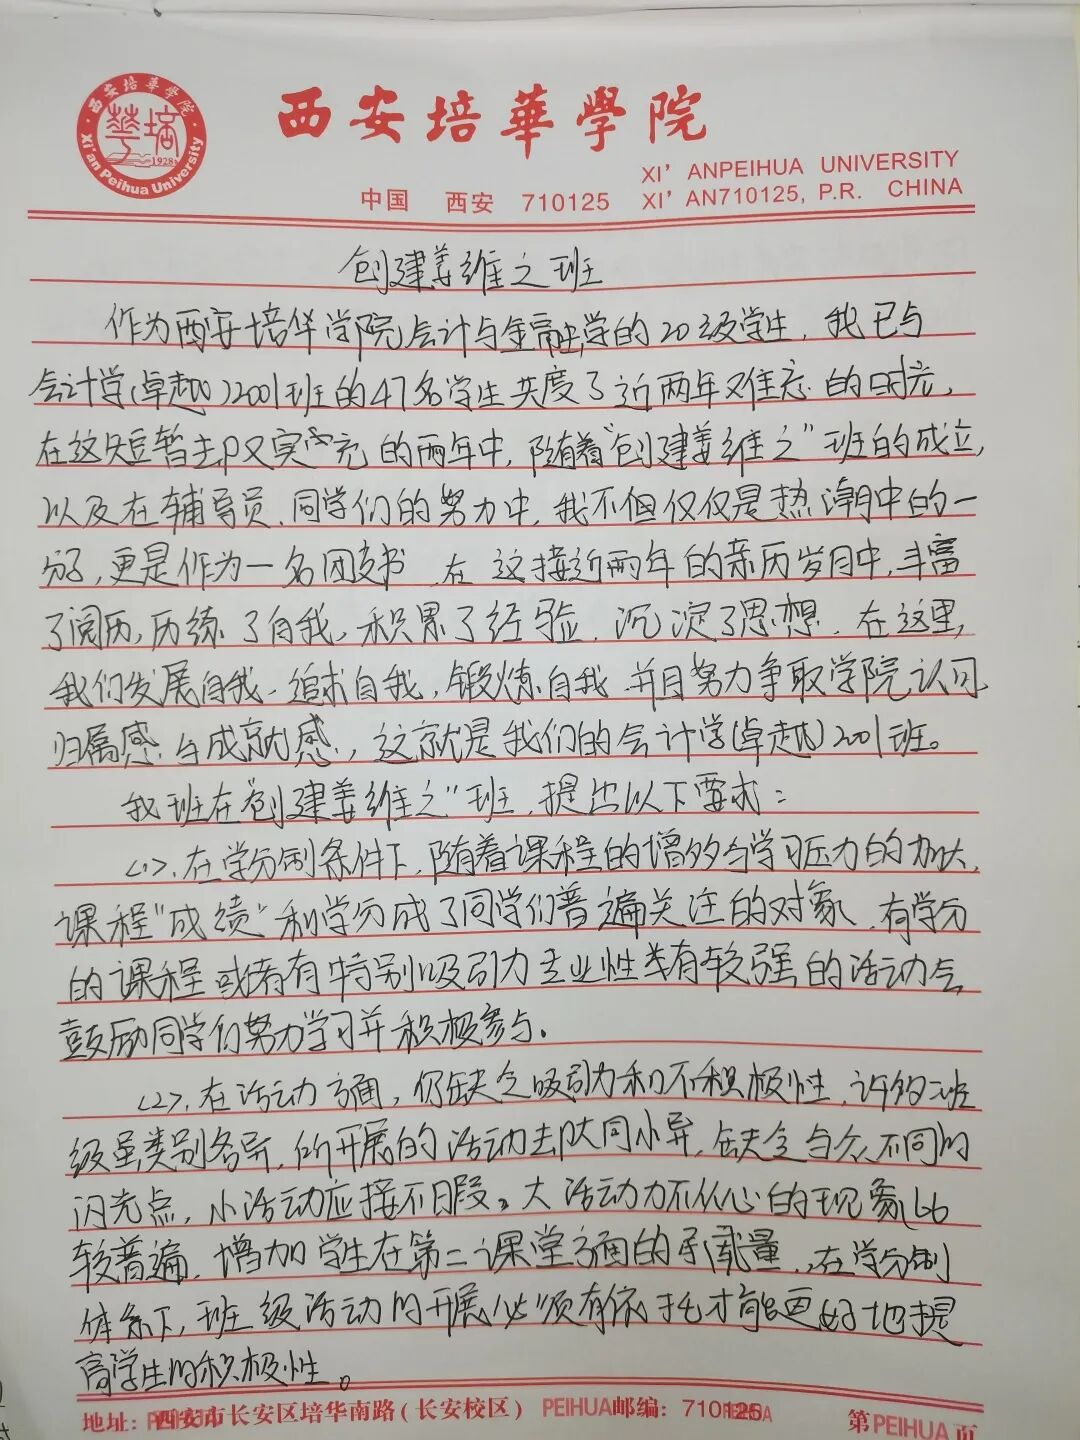 西安培華學院
西安培華學院
華培
1928
Xi'an Peihua University
XI' ANPEIHUA UNIVERSITY
中国 西安 710125 XI' AN710125, P.R. CHINA
创建姜维之班
作为西安培华学院会计与金融学的20级学生,我已与
会计学(卓越)2001班的47名学生共度了近两年难忘的时光,
在这短暂却又实充的两年中,随着"创建姜维之"班的成立,
以及在辅导员、同学们的努力中,我不但仅仅是热潮中的一
分子,更是作为一名团支书,在这接近两年的亲历岁月中,丰富
了阅历,历练了自我,积累了经验,沉淀了思想,在这里,
我们发展自我、追求自我,锻炼自我,并且努力争取学院认可
归属感与成就感,这就是我们的会计学(卓越)2001班。
我班在"创建姜维之"班,提出以下要求:
<1>.在学分制条件下,随着课程的增多与学习压力的加大,
课程"成绩"和学分成了同学们普遍关注的对象,有学分
的课程或者有特别吸引力专业性或有较强的活动会
鼓励同学们努力学习并积极参与.
<2>.在活动方面,仍缺乏吸引力和不积极性,许多班
级虽类别各异,所开展的活动却大同小异,缺乏与众不同的
闪光点,小活动应接不暇。大活动力不从心的现象比
较普遍,增加学生在第二课堂方面的承载量,在学分制
体系下,班级活动的开展必须有依托才能更好地提
高学生的积极性。
地址:西安市长安区培华南路(长安校区) PEIHUA邮编:710125
第PEIHUA页